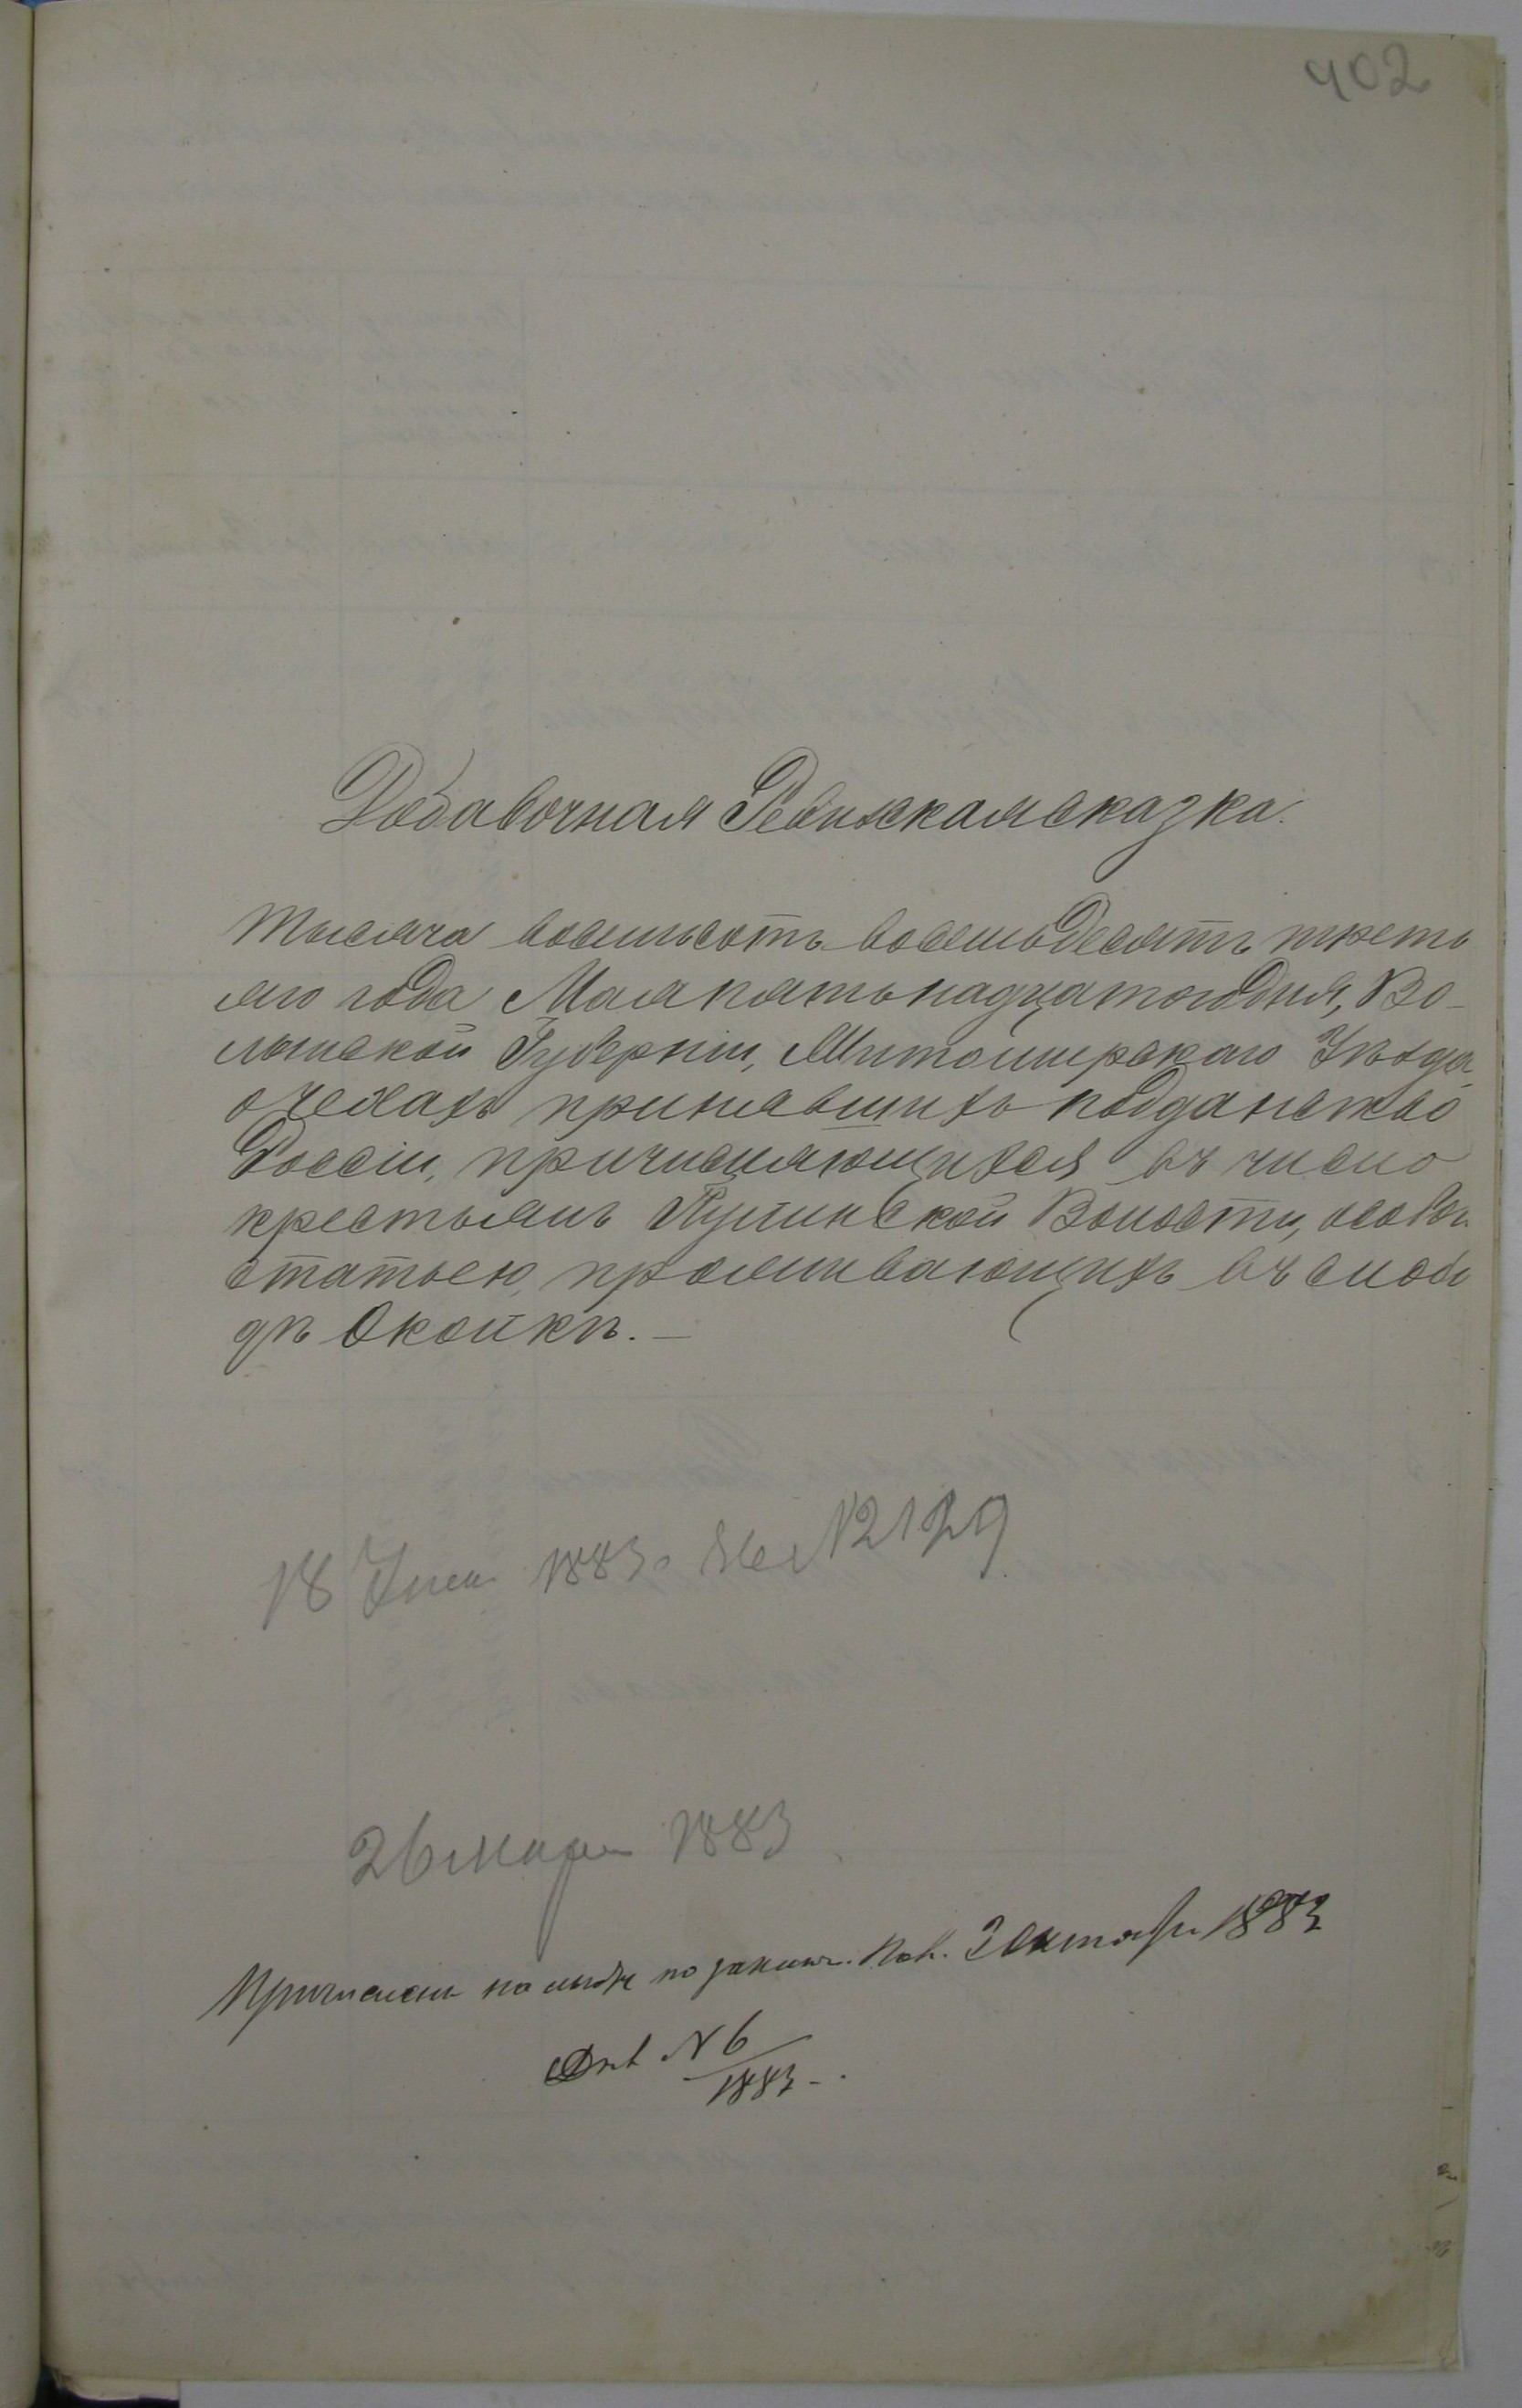 402
Добавочная Ревизкая сказка.
Тысяча восемьсотъ восемьдесятъ треть
яго года Мая пятьнадцатого дня, Во-
лынской Губерніи, Житомирскаго Уѣзда,
о чехахъ принявшихъ подданство
Россіи, причисляющихся въ число
крестьянъ Пулинской Волости, особой
статьею, проживающихъ въ слобо
дѣ Околкѣ. —
18 1883 № 2129
26 марта 1883
Причислены по 3 октября 1883
№ 6
1883 - .